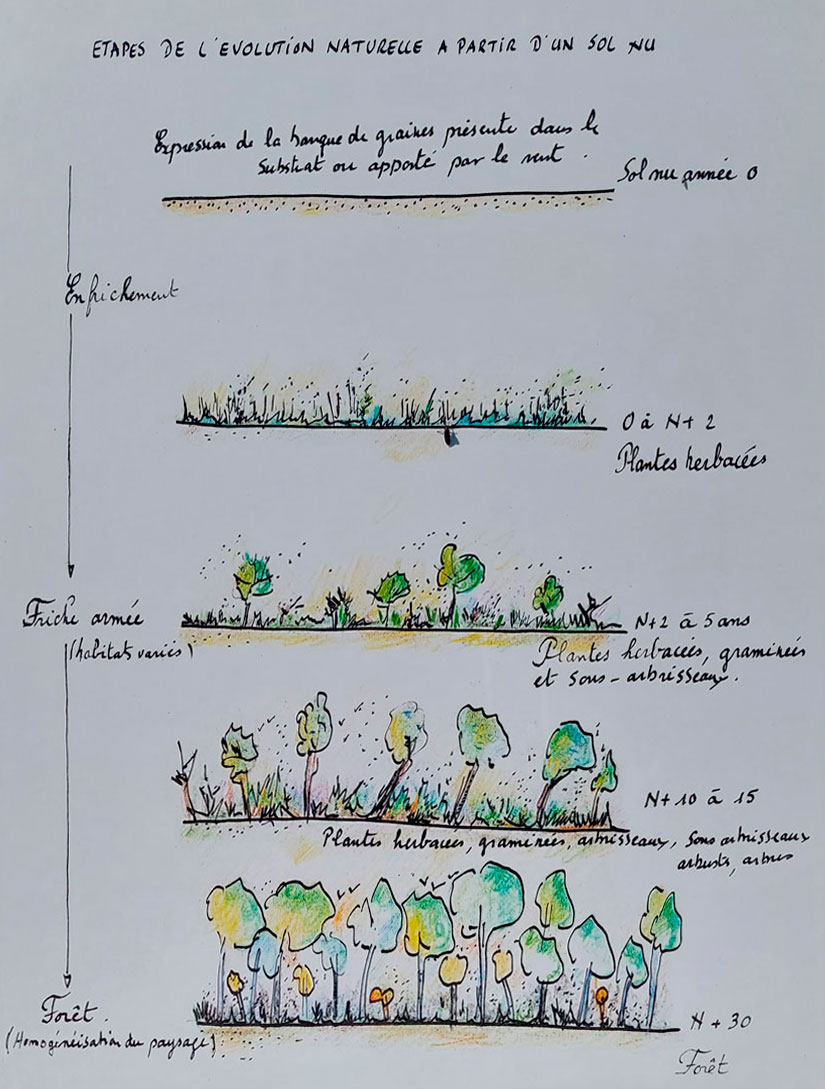 ETAPES DE L'EVOLUTION NATURELLE A PARTIR D'UN SOL NU
Expression de la banque de graines présente dans le
substrat ou apporté par le vent.
Sol nu année 0
Enfrichement
0 à N+2
Plantes herbacées
Friche armée
(habitats variés)
N+2 à 5 ans
Plantes herbacées, graminées
et sous-arbrisseaux.
N+10 à 15
Plantes herbacées, graminées, arbrisseaux, sous arbrisseaux
arbusts, arbres
Forêt.
(Homogénéisation du paysage)
N+30
Forêt